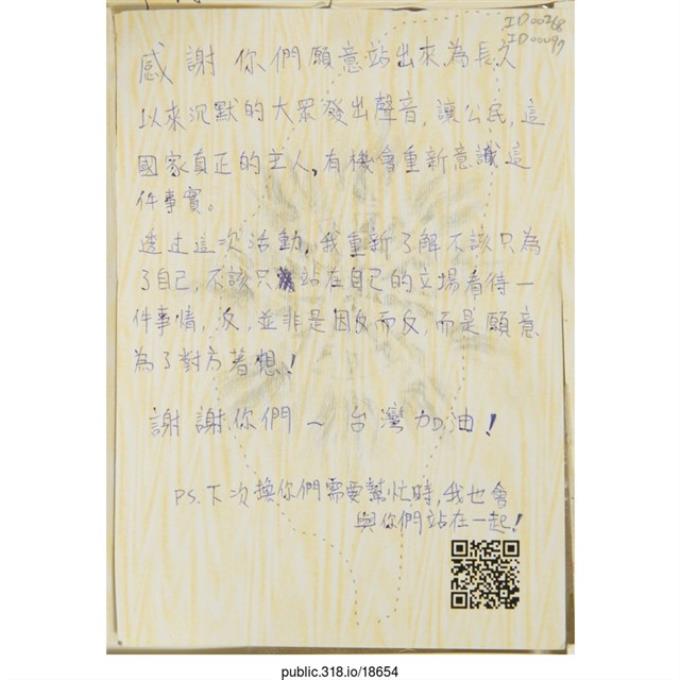 ID00268
ID00097
感謝你們願意站出來,為長久
以來沉默的大眾發出聲音,讓公民,這
國家真正的主人,有機會重新意識這
件事實。
透过這次活動,我重新了解不該只為
了自己,不該只站在自己的立場看待一
件事情,反,並非是因反而反,而是願意
為了對方著想!
謝謝你們~台灣加油!
PS.下次換你們需要幫忙時,我也會
與你們站在一起!
public.318.io/18654